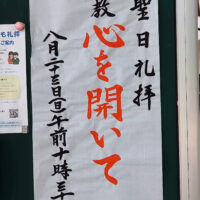 聖日礼拝
教 心を開いて
八月二十三日(日)午前十時三十
も礼拝
ご案内